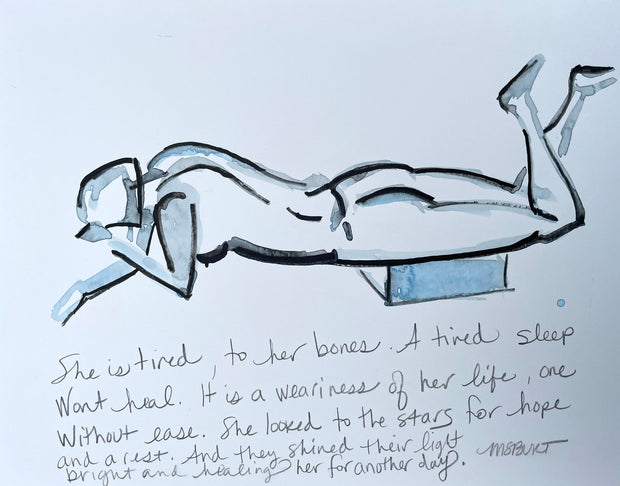 She is tired, to her bones. A tired sleep
Wont heal. It is a weariness of her life, one
Without ease. She looked to the stars for hope
and a rest. And they shined their light
bright and healing her for another day.
MSBURT